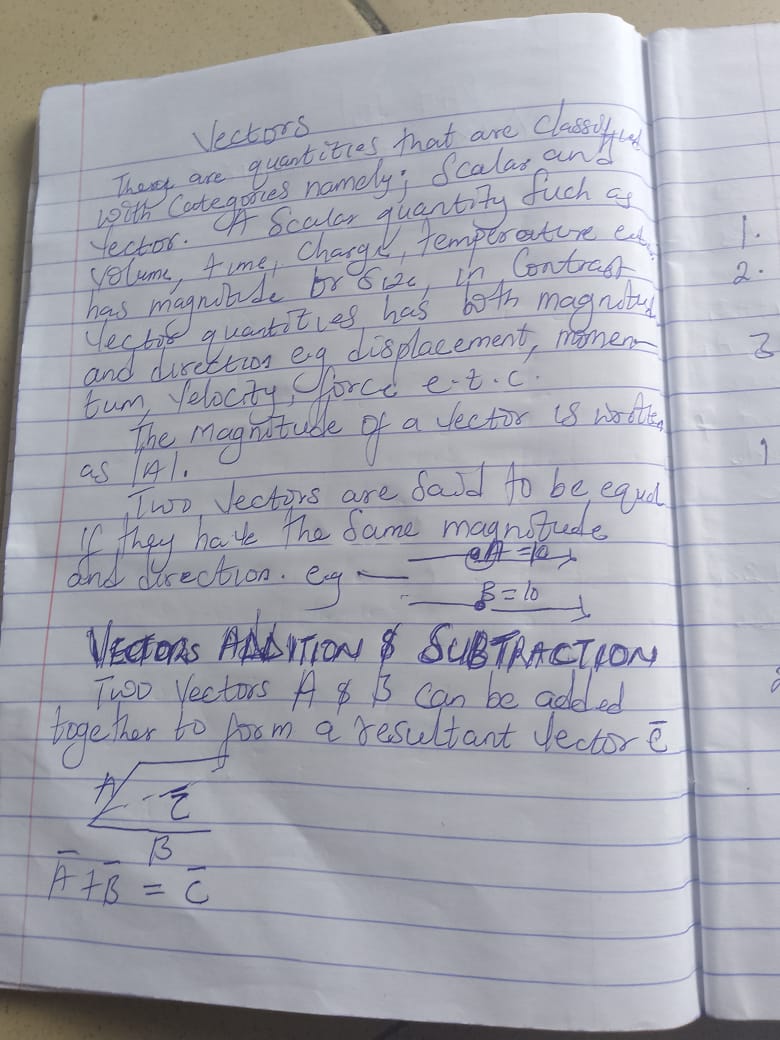 Vectors
There are quantities that are classified
with Categories namely; Scalar and
Vector. A Scalar quantity Such as
Volume, time, Charge, temperature etc.
has magnitude or Size, in Contrast
Vector quantities has both magnitud
and direction e.g displacement, momen-
tum, Velocity, force e.t.c.
The magnitude of a Vector is written
as |A|.
Two Vectors are Said to be equal
if they have the Same magnitude
and direction. e.g A = 10
B = 10
VECTORS ADDITION & SUBTRACTION
Two Vectors A & B Can be added
together to form a resultant Vector C̄
A
C̄
B
Ā + B̄ = C̄
1.
2.
3
1